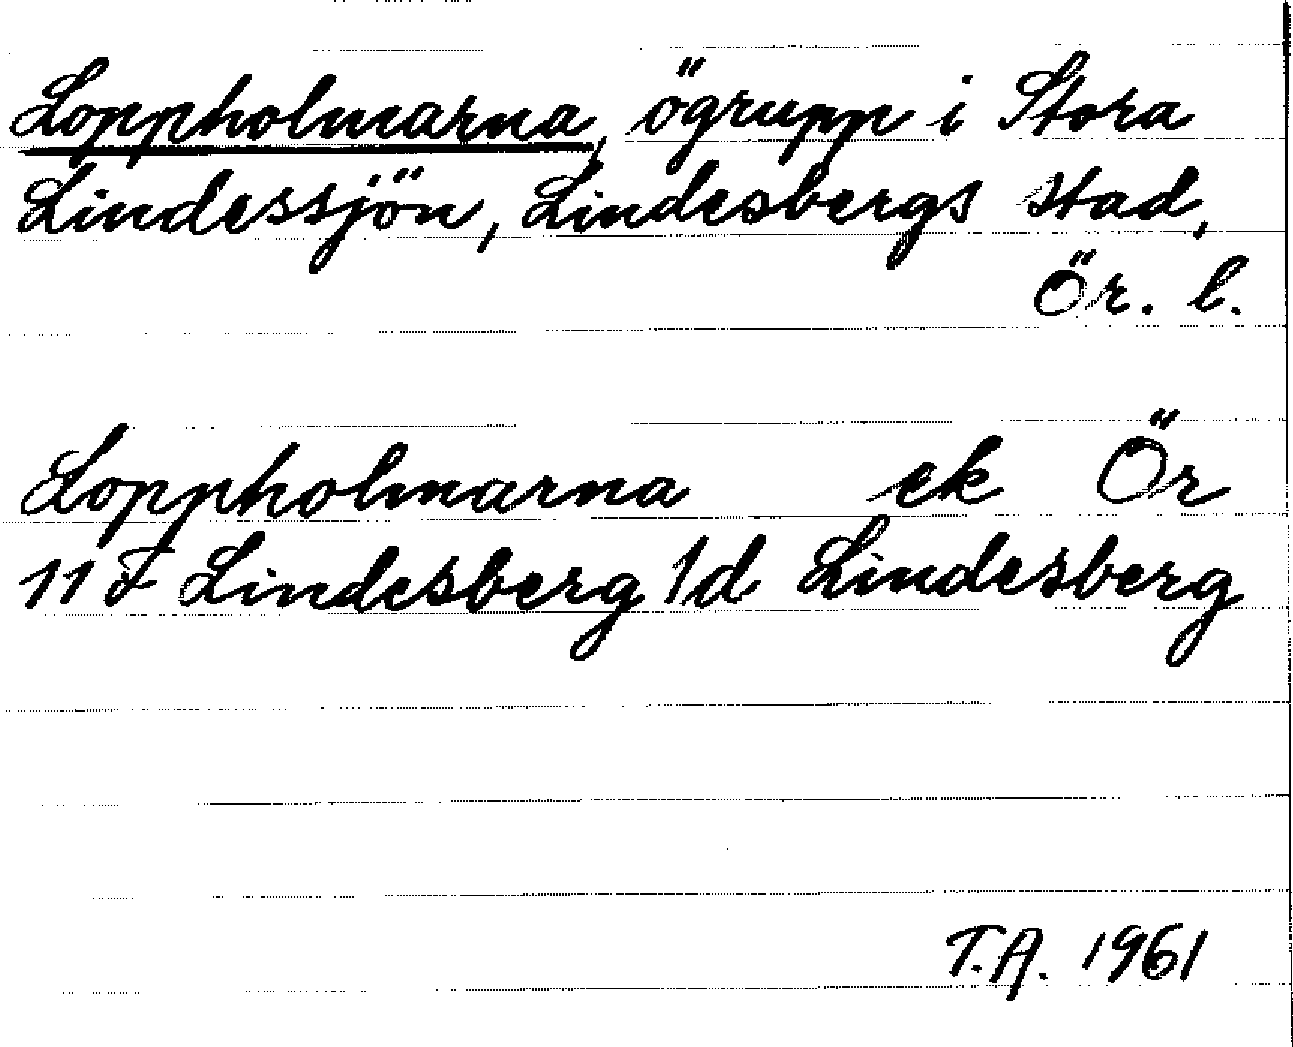 Loppholmarna, ögrupp i Stora
Lindessjön, Lindesbergs stad,
Ör. l.
Loppholmarna ek Ör
11 F Lindesberg 1d Lindesberg
T.A. 1961